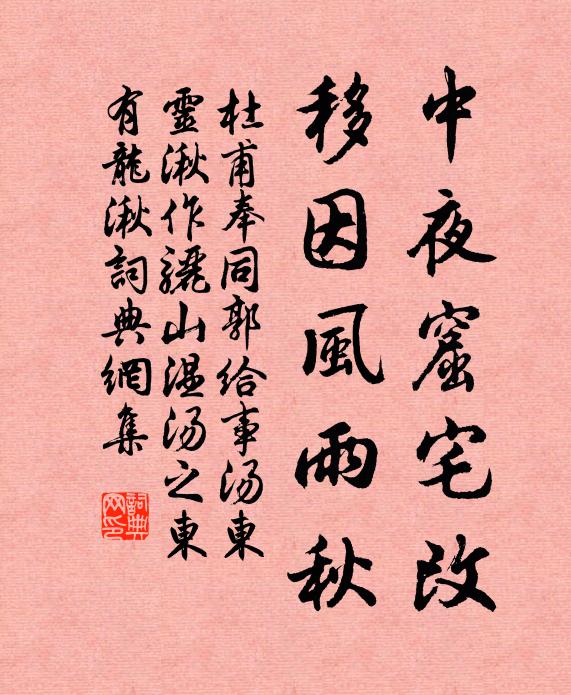 中夜窟宅改
移因風雨秋
杜甫奉同郭給事湯東
靈湫作驪山温湯之東
有龍湫詞典網集
詞典
网印